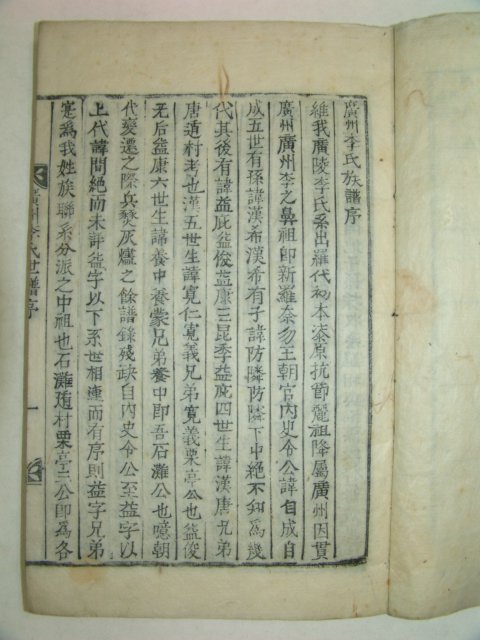 廣州李氏族譜序
維我廣陵李氏系出羅代初本漆原抗節麗祖降屬廣州因貫
廣州廣州李之鼻祖即新羅奈勿王朝官內史令公諱自成自
成五世有孫諱漢布漢希有子諱防隣防隣下中絶不知為幾
代其後有諱益庇益俊益康三昆季益庇四世生諱漢唐兄弟
唐遁村考也漢五世生諱寛仁寛義兄弟寛義栗亭公也益俊
无后益康六世生諱養中養蒙兄弟養中即吾石灘公也噫朝
代變遷之際兵燹灰燼之餘譜錄殘缺自內史令公至益字以
上代諱間絶而未詳益字以下系世相連而有序則益字兄弟
寔為我姓族聯系分派之中祖也石灘遁村栗亭三公即為各
廣州李氏世譜序
一